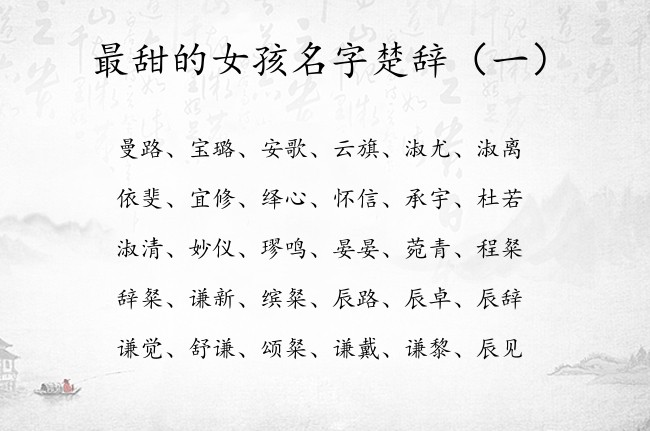 最甜的女孩名字楚辞（一）
曼路、宝璐、安歌、云旗、淑尤、淑离
依斐、宜修、绎心、怀信、承宇、杜若
淑清、妙仪、璆鸣、晏晏、菀青、程粲
辞粲、谦新、缤粲、辰路、辰卓、辰辞
谦觉、舒谦、颂粲、谦戴、谦黎、辰见